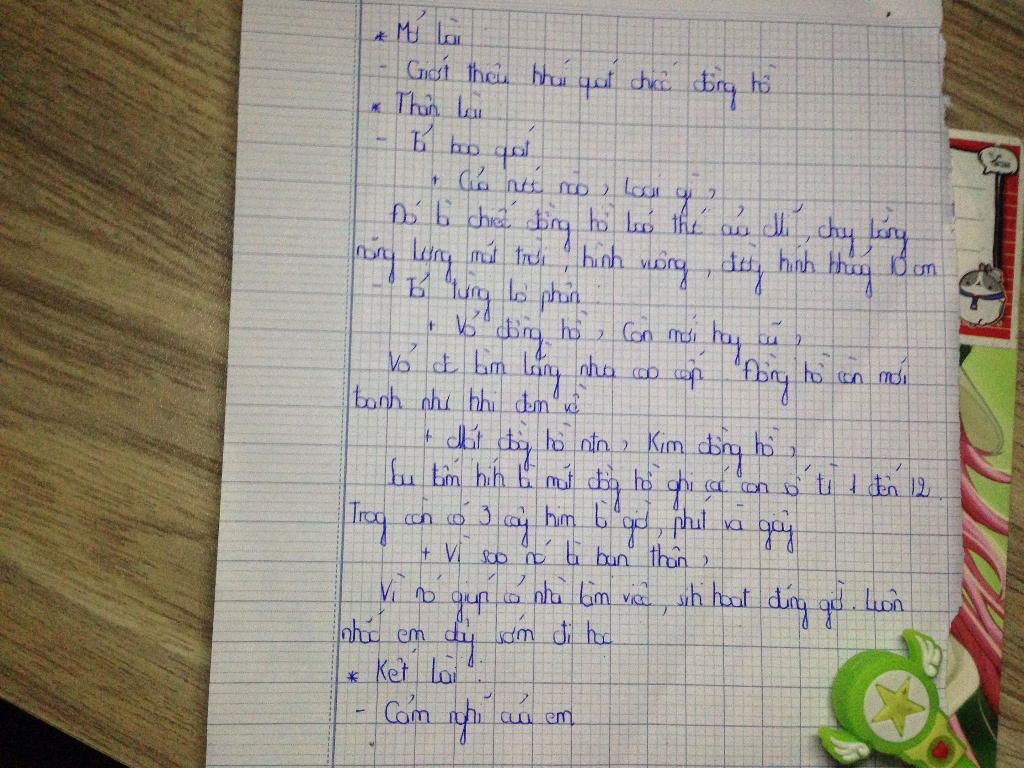 * Mở bài
- Giới thiệu khái quát chiếc đồng hồ
* Thân bài
- Tả bao quát
+ Của nước nào, loại gì,
Đó là chiếc đồng hồ báo thức của Mĩ, chạy bằng
năng lượng mặt trời, hình vuông, đường kính khoảng 10 cm
- Tả từng bộ phận:
+ Vỏ đồng hồ, Còn mới hay cũ,
Vỏ đc làm bằng nhựa cao cấp. Đồng hồ còn mới
toanh như khi đem về
+ Mặt đồng hồ ntn, Kim đồng hồ,
Sau tấm kính là mặt đồng hồ ghi các con số từ 1 đến 12.
Trong còn có 3 cây kim là giờ, phút và giây
+ Vì sao nó là bạn thân,
Vì nó giúp cả nhà làm việc, sinh hoạt đúng giờ. Luôn
nhắc em dậy sớm đi học
* Kết bài:
- Cảm nghĩ của em